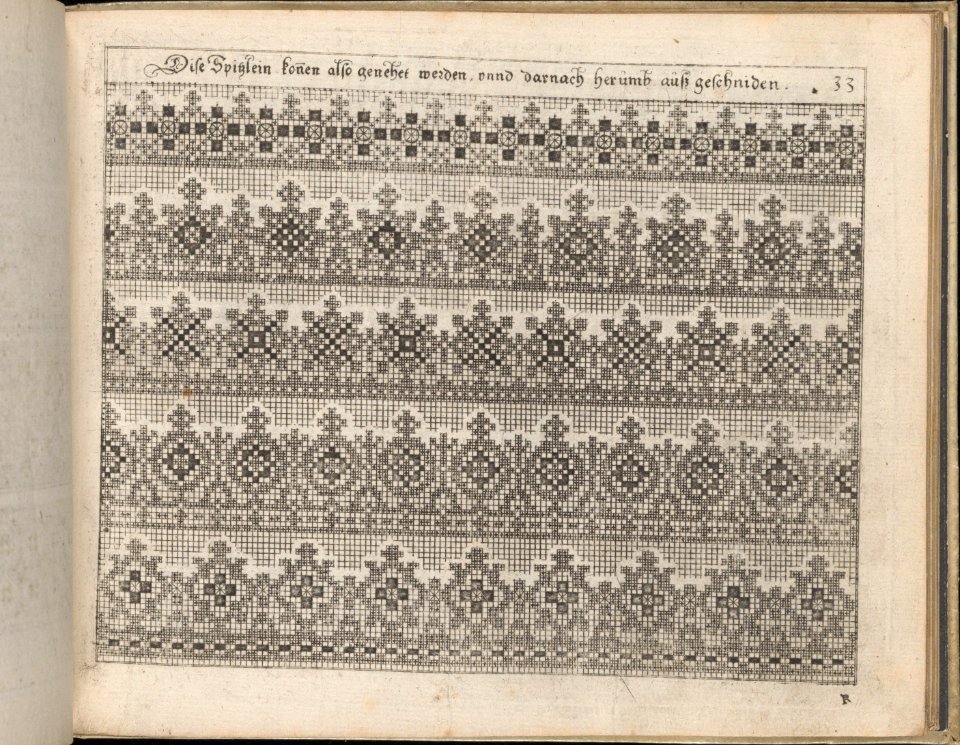 Dise Spitzlein konen also genehet werden, vnnd darnach herümb auß geschniden. 33
R